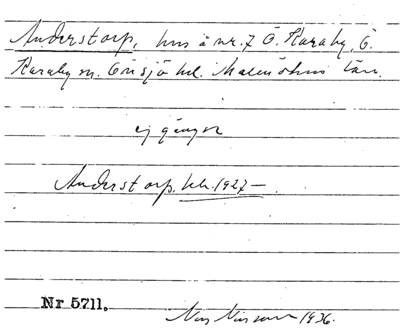 Anderstorp, hus å nr. 7 Ö. Karaby, Ö.
Karaby sn. Onsjö hd. Malmöhus län.
ej gängse
Anderstorp. kh. 1927 —
Nr 5711.
Nils Nilsson 1936.